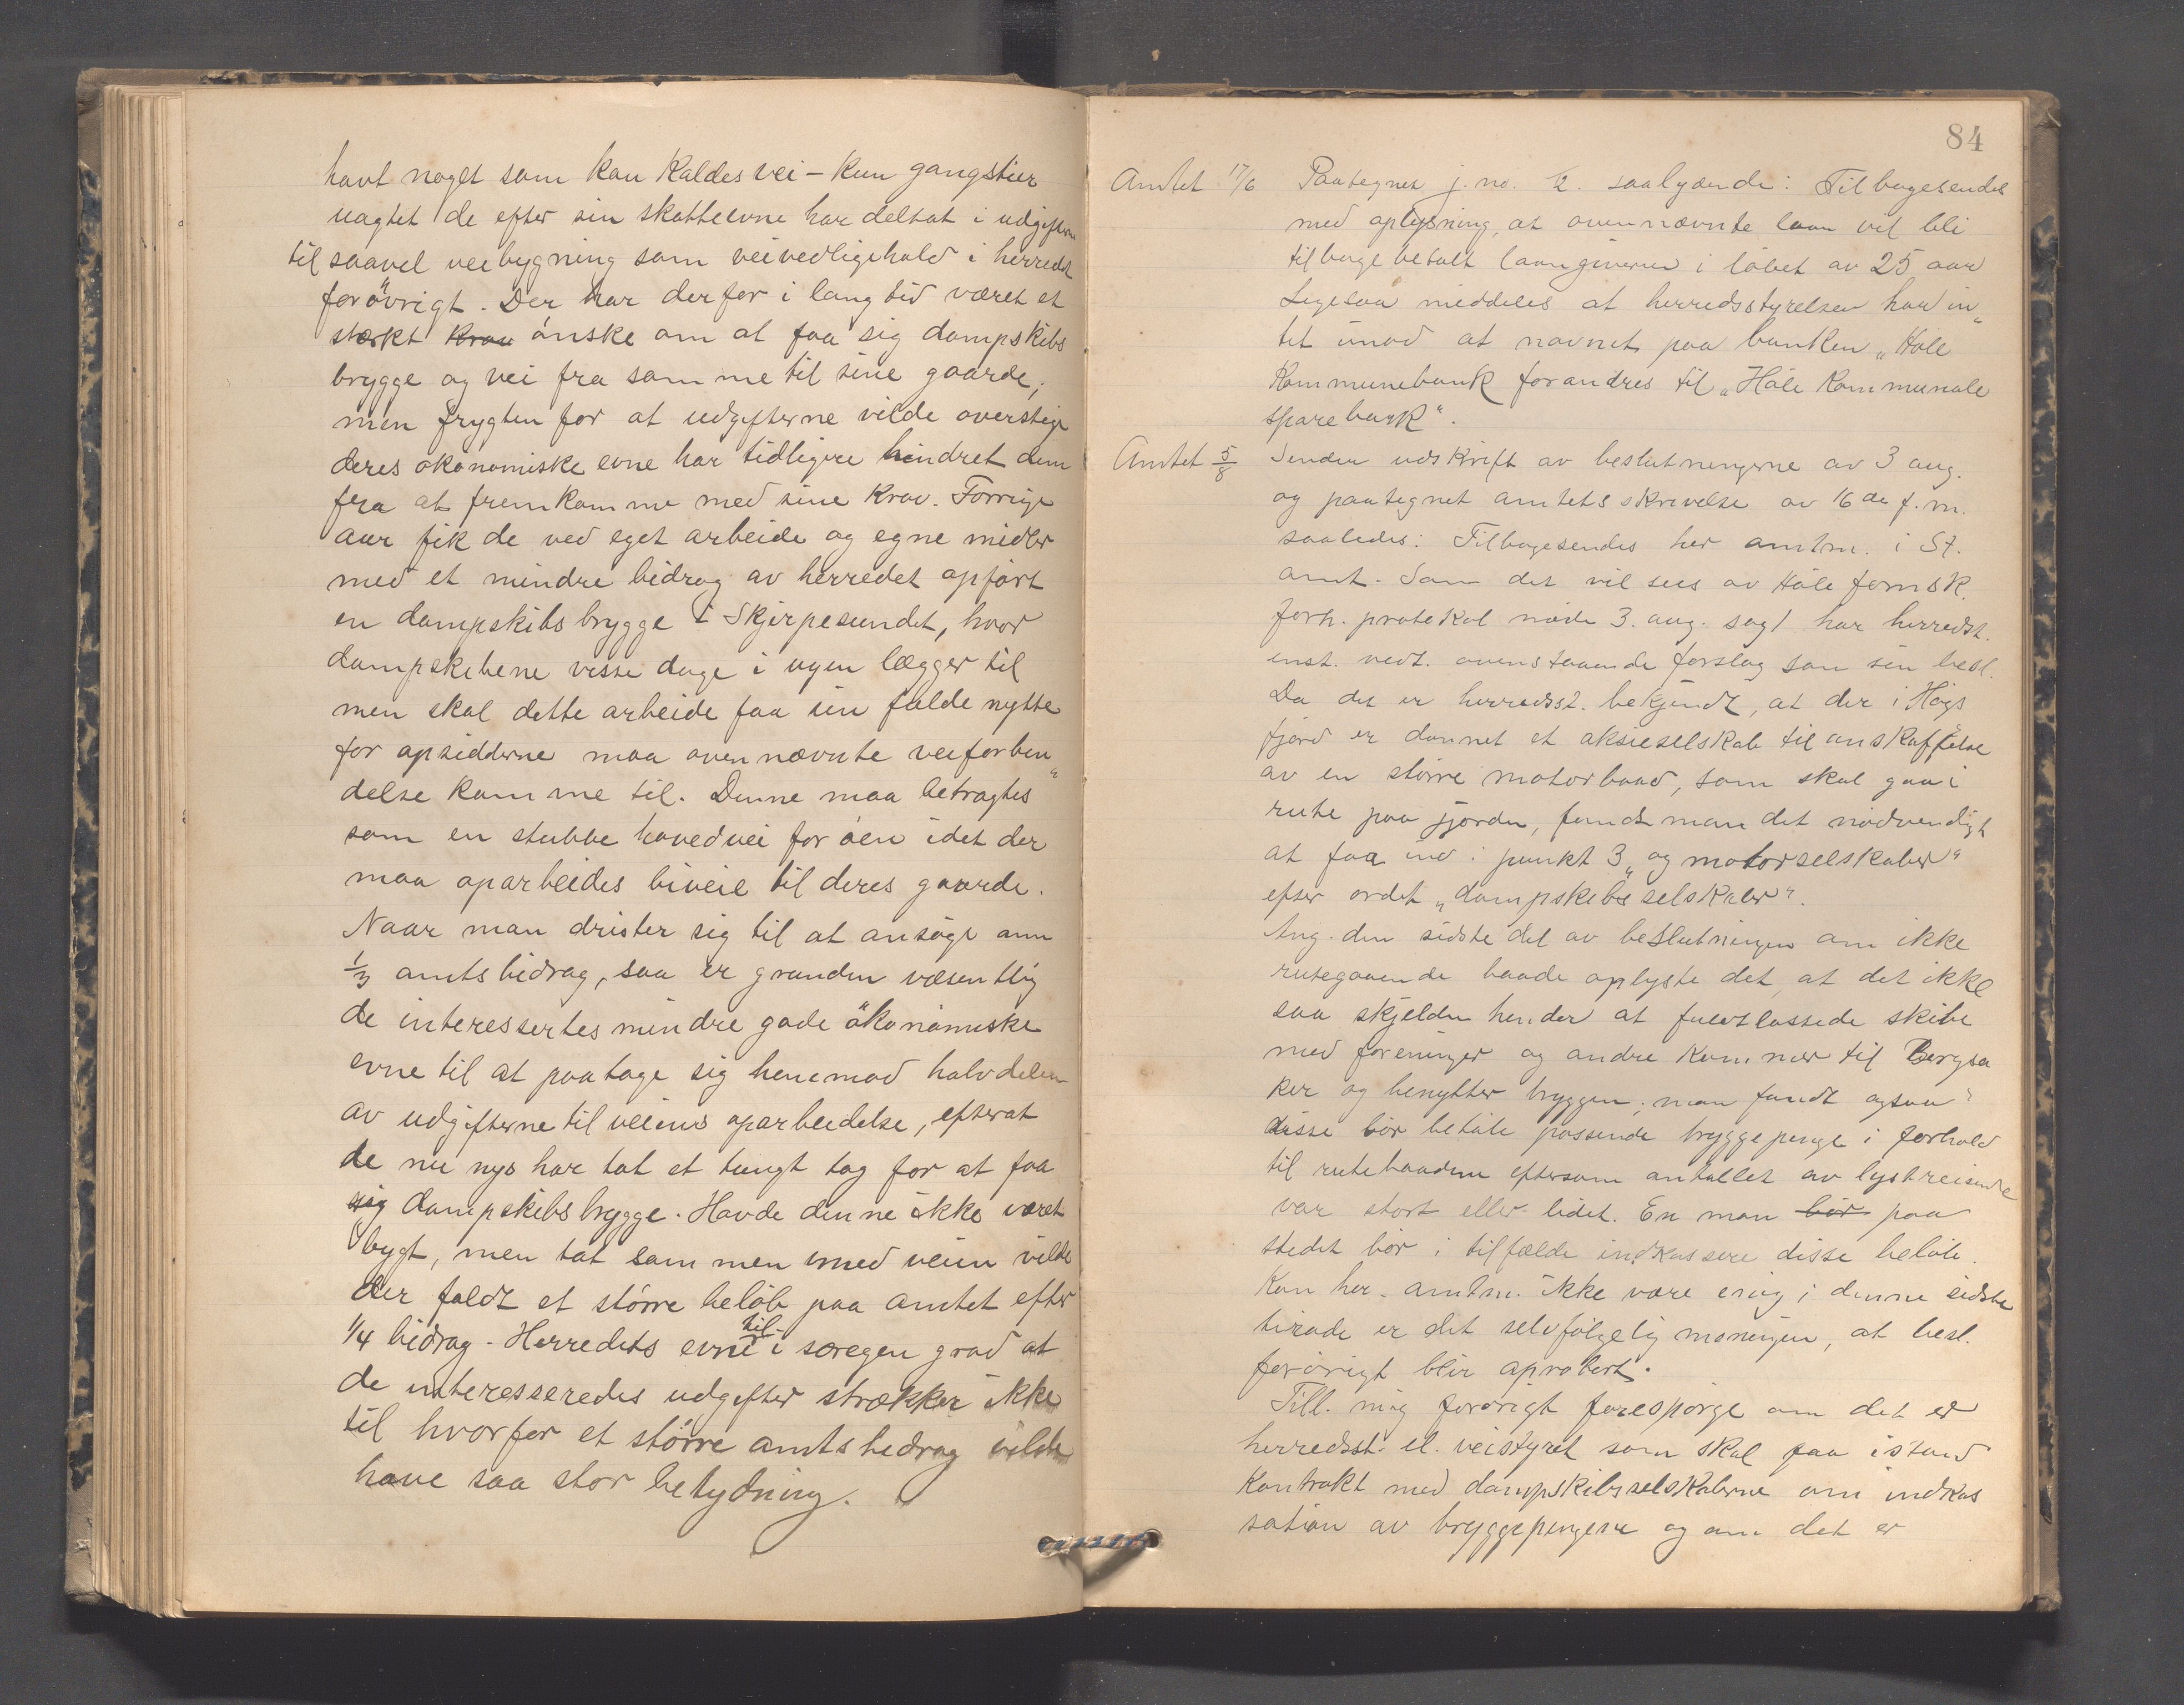 havt noget som kan kaldes vei – kun gangstier
uagtet de efter sin skatteevne har deltat i udgifterne
til saavel veibygning som veivedligehold i herredet
forøvrigt. Der har derfor i lang tid været et
stærkt krav ønske om at faa sig dampskibs
brygge og vei fra samme til sine gaarde;
men frygten for at udgifterne vilde overstige
deres økonomiske evne har tidligere hindret dem
fra at fremkomme med sine krav. Forrige
aar fik de ved eget arbeide og egne midler
med et mindre bidrag av herredet opført
en dampskibsbrygge i Skjerpesundet, hvor
dampskibene visse dage i ugen lægger til
men skal dette arbeide faa sin fulde nytte
for opsidderne maa ovennævnte veiforbin„
delse komme til. Denne maa betragtes
som en stubbe hovedvei for øen idet der
maa oparbeides biveie til deres gaarde.
Naar man drister sig til at ansøge om
1/3 amtsbidrag, saa er grunden væsentlig
de interessertes mindre gode økonomiske
evne til at paatage sig henimod halvdelen
av udgifterne til veiens oparbeidelse, efterat
de nu nys har tat et tungt tag for at faa
sig dampskibsbrygge. Havde denne ikke været
bygt, men tat sammen med veien vilde
der faldt et større beløb paa amtet efter
1/4 bidrag. Herredets evne til i særegen grad at
de interesseredes udgifter strækker ikke
til hvorfor et større amtsbidrag vilde
have saa stor betydning.
84
Amtet 17/6 Paategnes j. no. 12. saalydende: Tilbagesendes
med oplysning, at ovennævnte laan vil bli
tilbagebetalt laangiveren i løbet av 25 aar
Ligesaa meddeles at herredsstyrelsen har in„
tet imod at navnet paa banken „Høle
Kommunebank forandres til „Høle Kommunale
sparebank“.
Amtet 5/8 Sender udskrift av beslutningerne av 3 aug.
og paategnet amtets skrivelse av 16de f. m.
saaledes: Tilbagesendes her amtm. i St.
amt. Som det vil sees av Høle formsk.
forh. protokol møde 3. aug. sag 1 har herredst.
enst. vedt. ovenstaaende forslag som sin besl.
Da det er herredsst. bekjendt, at der i Høgs
fjord er dannet et aksieselskab til anskaffelse
av en større motorbaad, som skal gaa i
rute paa fjorden, fandt man det nødvendigt
at faa ind i punkt 3 „og motorselskaber“
efter ordet „dampskibsselskaber“.
Ang. den sidste del av beslutningen om ikke
rutegaaende baade oplyste det, at det ikke
saa skjelden hender at fuldtlassede skibe
med foreninger og andre kommer til Bergsa
ker og benytter bryggen; man fandt ogsaa
disse bør betale passende bryggepenge i forhold
til rutebaadene eftersom antallet av lystreisende
var stort eller lidet. En man bør paa
stedet bør i tilfælde indkassere disse beløb.
Kan her. amtm. ikke være enig i denne sidste
tirade er det selvfølgelig meningen, at besl.
forøvrigt blir aprobert.
Till. mig forøvrigt forespørge om det er
herredsst. el. veistyret som skal faa istand
Kontrakt med dampskibsselskaberne om indkas
sation av bryggepengene og om det er